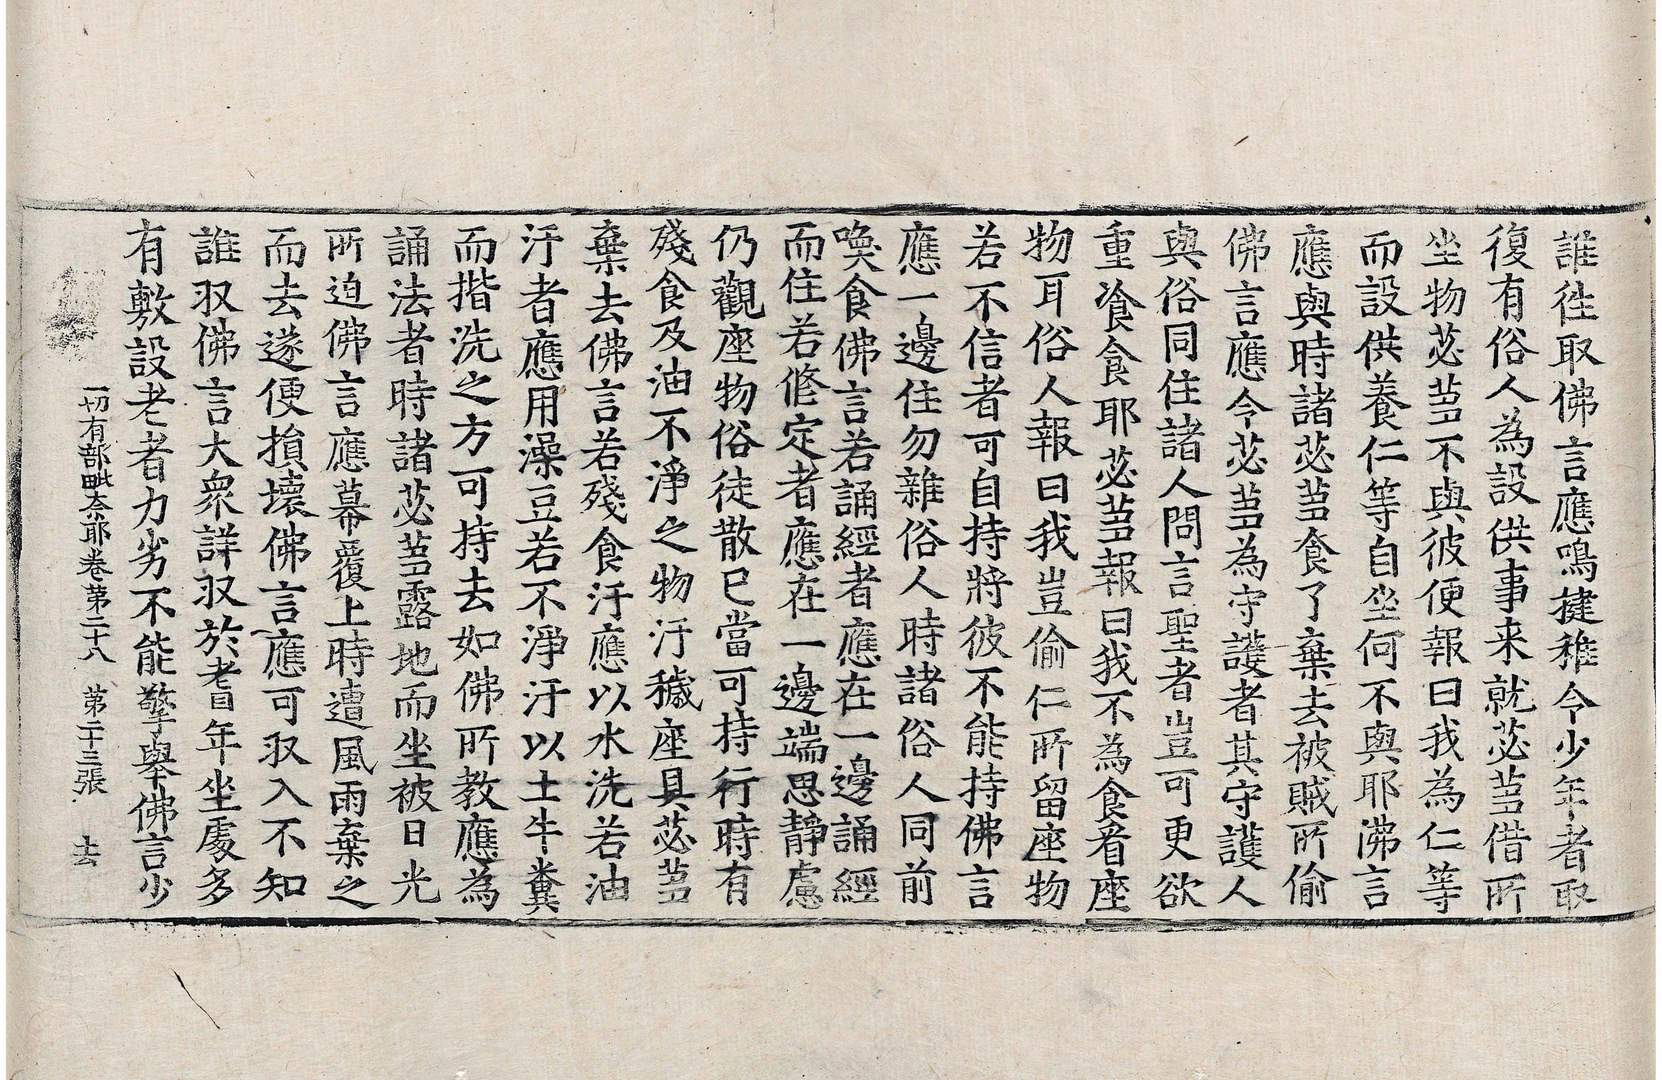 誰徃取佛言應鳴揵稚令少年者取
復有俗人為設供事来就苾芻借所
坐物苾芻不與彼便報曰我為仁等
而設供養仁等自坐何不與耶佛言
應與時諸苾芻食了棄去被賊所偷
佛言應令苾芻為守護者其守護人
與俗同住諸人問言聖者豈可更欲
重飡食耶苾芻報曰我不為食看座
物耳俗人報曰我豈偷仁所留座物
若不信者可自持將彼不能持佛言
應一邊住勿雜俗人時諸俗人同前
喚食佛言若誦經者應在一邊誦經
而住若修定者應在一邊端思靜慮
仍觀座物俗徒散已當可持行時有
殘食及油不淨之物汙穢座具苾芻
棄去佛言若殘食汙應以水洗若油
汙者應用澡豆若不淨汙以土牛糞
而揩洗之方可持去如佛所教應為
誦法者時諸苾芻露地而坐被日光
所迫佛言應幕覆上時遭風雨棄之
而去遂便損壞佛言應可収入不知
誰収佛言大衆詳収於耆年坐處多
有敷設老者力劣不能擎舉佛言少
一切有部毗奈耶卷第二十八　第二十三張　去